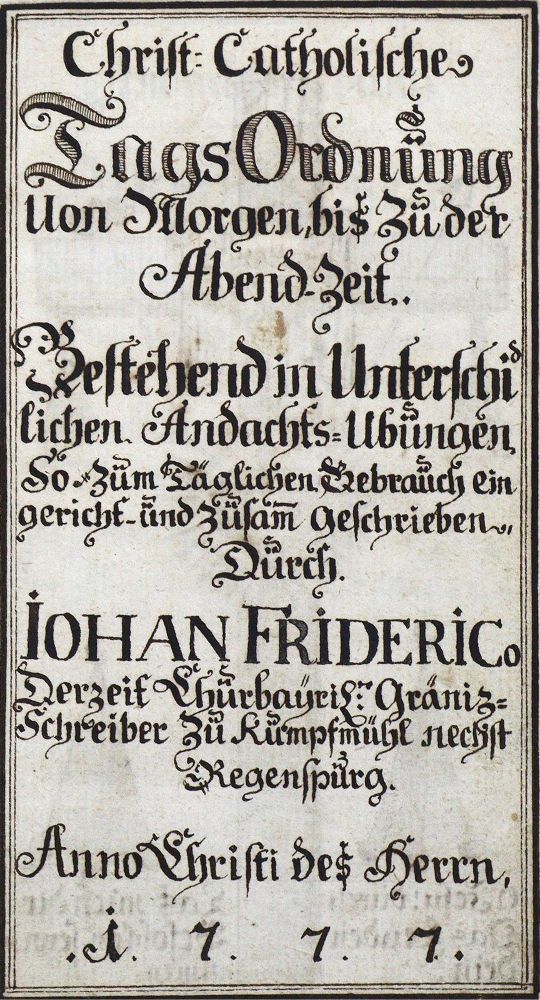 Christ= Catholische
Tags Ordnüng
Von Morgen, biß Zü der
Abend=Zeit..
Bestehend in Unterschid
lichen Andachts=Ubüngen,
So züm Täglichen Gebraüch ein
gericht- ünd züsam̅ geschrieben,,
Dürch.
IOHAN FRIDERICo
Derzeit Chürbaÿris. Gräniz=
Schreiber Zü Kümpfmühl nechst
Regenspürg.
Anno Christi deß Herrn,
.1. 7. 7. 7.